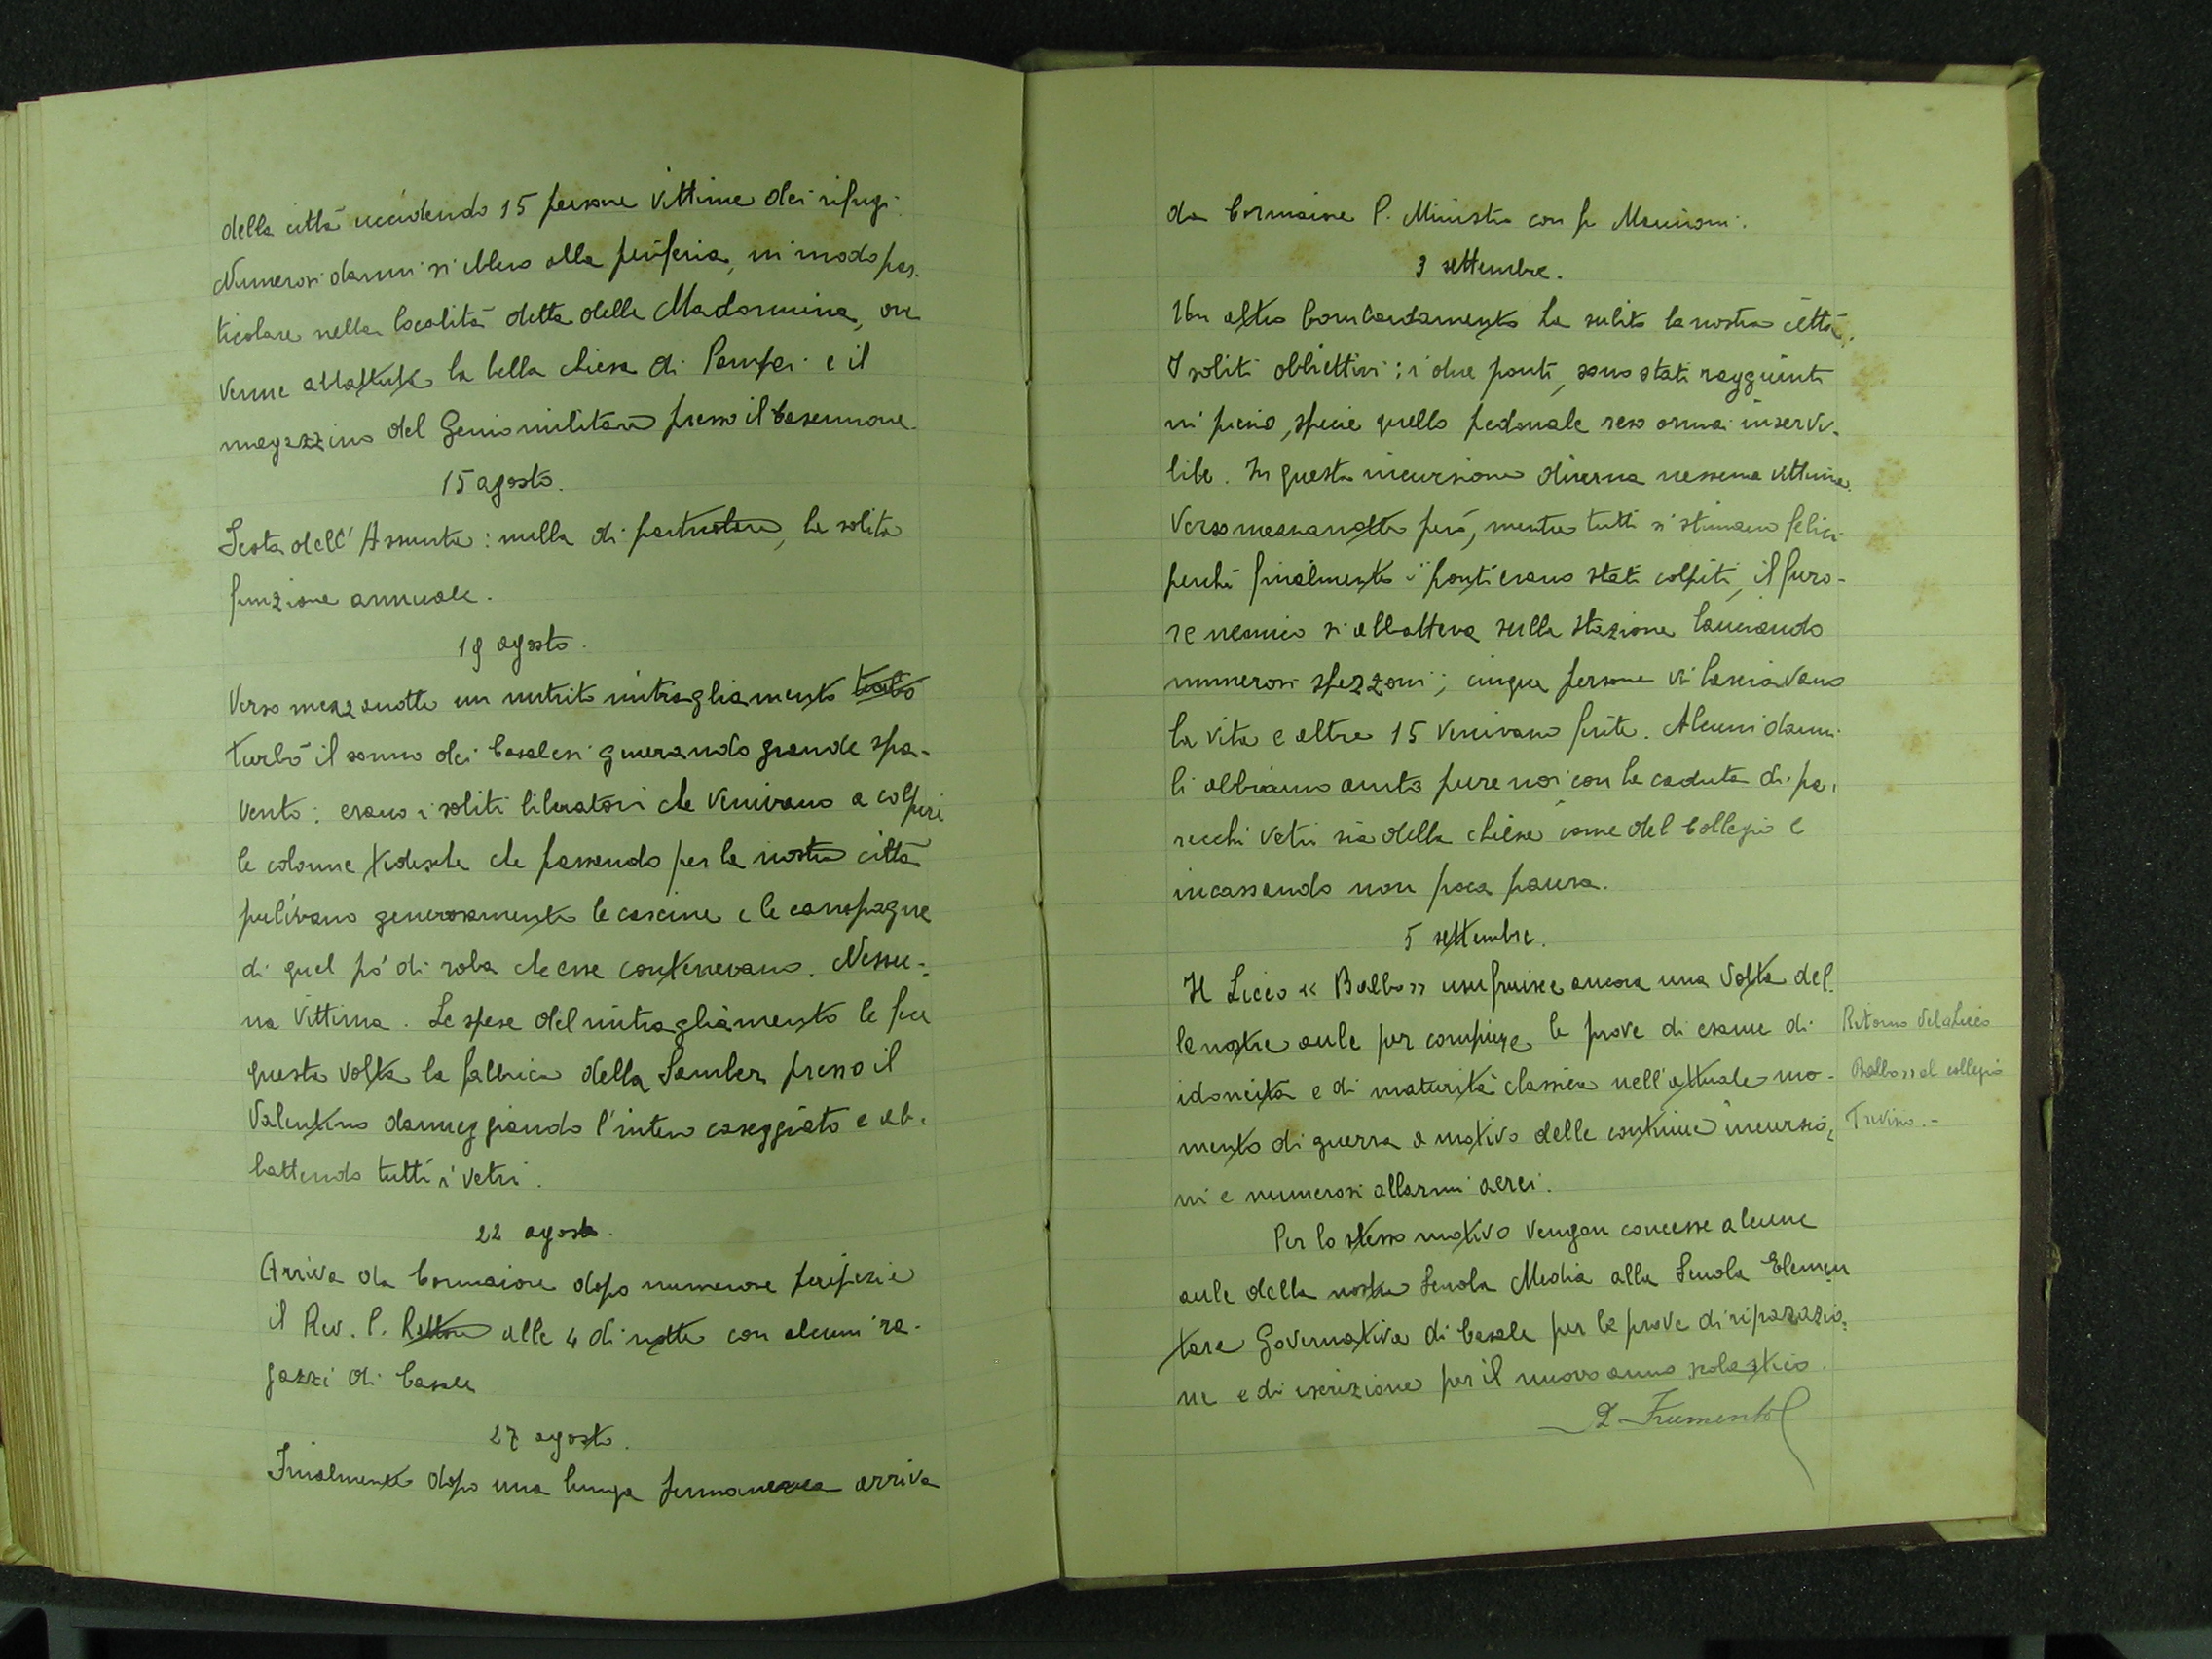 della città uccidendo 15 persone vittime dei rifugi.
Numerosi danni si ebbero alla periferia, in modo par-
ticolare nella località detta della Madonnina, ove
venne abbattuta la bella chiesa di Pompei e il
magazzino del Genio militare presso il Casermone.
15 agosto.
Festa dell'Assunta: nulla di particolare, la solita
funzione annuale.
19 agosto.
Verso mezzanotte un nutrito mitragliamento
turbò il sonno dei Casalesi generando grande spa-
vento: erano i soliti liberatori che venivano a colpire
le colonne tedesche che passando per la nostra città
pulivano generosamente le cascine e le campagne
di quel pò di roba che esse contenevano. Nessu-
na vittima. Le spese del mitragliamento le fece
questa volta la fabbrica della presso il
Valentino danneggiando l'intero caseggiato e ab-
battendo tutti i vetri.
22 agosto.
Arriva da Cormaiore dopo numerose peripezie
il Rev. P. Rettore alle 4 di notte con alcuni ra-
gazzi di Casale
27 agosto.
Finalmente dopo una lunga permanenza arriva
da Cormaiore P. Ministro con fr.
3 settembre.
Un altro bombardamento ha subito la nostra città.
I soliti obbiettivi: i due ponti, sono stati raggiunti
in pieno, specie quello pedonale reso ormai inservi-
bile. In questa incursione diurna nessuna vittima.
Verso mezzanotte però, mentre tutti si stimavano felici
perchè finalmente i ponti erano stati colpiti, il furo-
re nemico si abbatteva sulla stazione lanciando
numerosi spezzoni; cinque persone vi lasciavano
la vita e altre 15 venivano ferite. Alcuni danni
li abbiamo avuto pure noi con la caduta di pa-
recchi vetri sia della chiesa come del Collegio e
incassando non poca paura.
5 settembre.
Il Liceo « Balbo » usufruisce ancora una volta del-
le nostre aule per compiere le prove di esame di
idoneità e di maturità classica nell'attuale mo-
mento di guerra a motivo delle continue incursio-
ni e numerosi allarmi aerei.
Ritorno del Liceo
Balbo » al collegio
Treviso.-
Per lo stesso motivo vengon concesse alcune
aule della nostra Scuola Media alla Scuola Elemen
tare Governativa di Casale per le prove di riparazio-
ne e di iscrizione per il nuovo anno scolastico.
P. Frumento